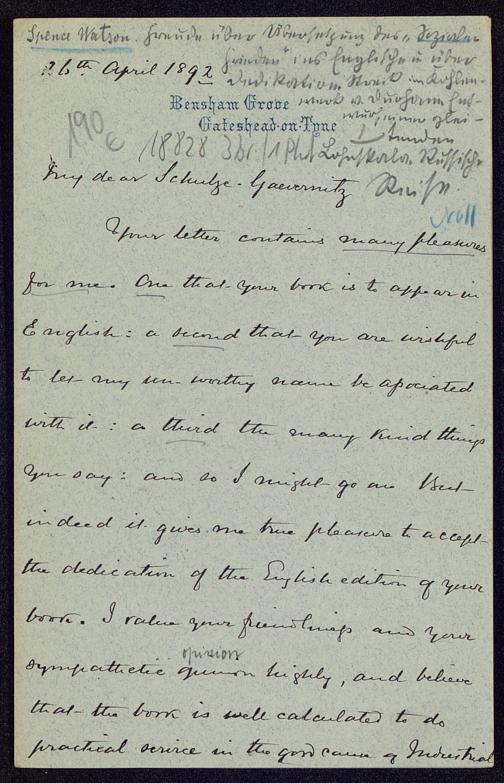 Spence Watson. Freude über Übersetzung des "Sozialen
Frieden" ins Englische u über
26th April 1892
Dedikation. Streik im Kohlen-
Bensham Grove
werk v. Durham
Gateshead-on-Tyne
190
18828 3 Br/1 Lohnskala. Russische
Reise.
My dear Schulze-Gaevernitz
Your letter contains many pleasures
for me. One that your book is to appear in
English: a second that you are wishful
to let my un-worthy name be associated
with it: a third the many kind things
you say: and so I might go on But
indeed it gives me true pleasure to accept
the dedication of the English edition of your
book. I value your friendliness and your
opinion
sympathetic opinion highly, and believe
that the book is well calculated to do
practical service in the good cause of Industrial